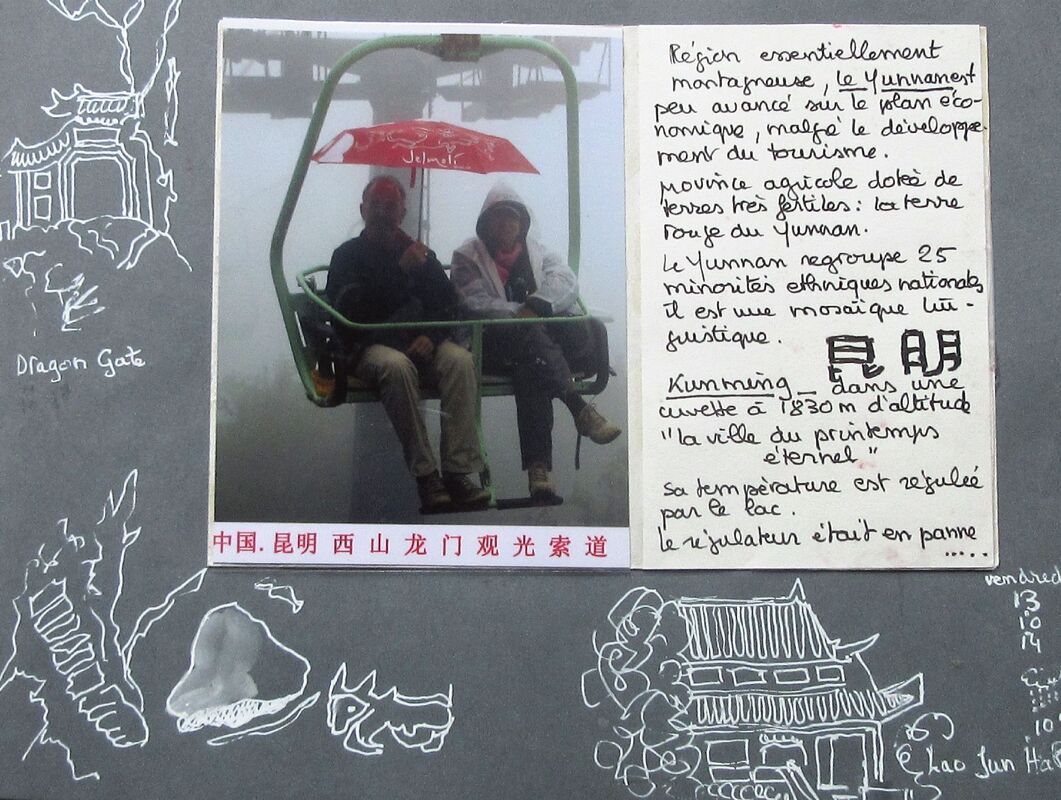 Dragon Gate
Jelmoli
中国.昆明西山龙门观光索道
Région essentiellement
montagneuse, le Yunnan est
peu avancé sur le plan éco-
nomique, malgé le développe-
ment du tourisme.
province agricole dotée de
terres très fertiles: la terre
rouge du Yunnan.
Le Yunnan regroupe 25
minorités ethniques nationales
il est une mosaïque lin-
guistique.
昆明
Kunming _ dans une
cuvette à 1830m d'altitude
"la ville du printemps
éternel"
sa température est régulée
par le lac.
le régulateur était en panne
.....
vendred
13
10
14
10
Lao Jun